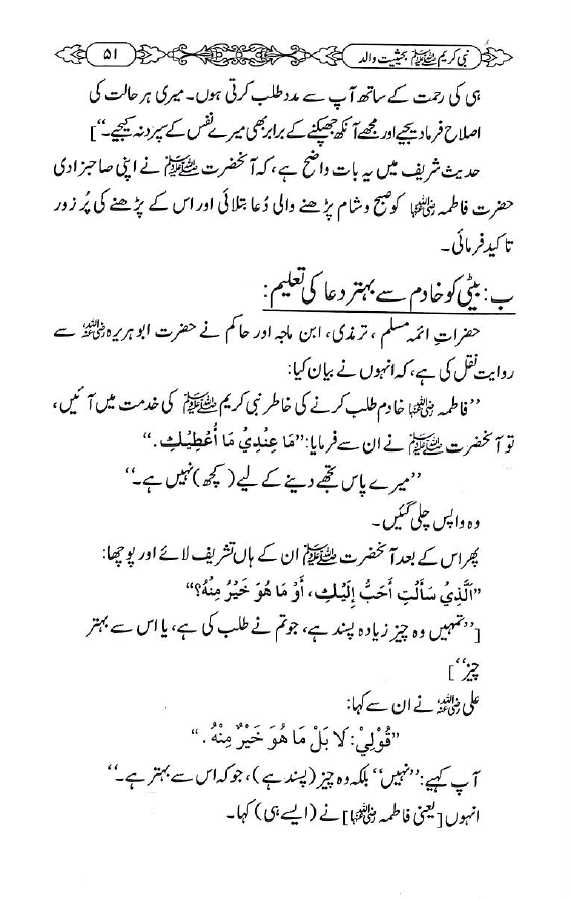 نبی کریم ﷺ بحیثیت والد
۵۱
ہی کی رحمت کے ساتھ آپ سے مدد طلب کرتی ہوں۔ میری ہر حالت کی
اصلاح فرما دیجیے اور مجھے آنکھ جھپکنے کے برابر بھی میرے نفس کے سپرد نہ کیجیے۔‘‘]
حدیث شریف میں یہ بات واضح ہے، کہ آنحضرت ﷺ نے اپنی صاحبزادی
حضرت فاطمہ رضی اللہ عنہا کو صبح و شام پڑھنے والی دُعا بتلائی اور اس کے پڑھنے کی پُر زور
تاکید فرمائی۔
ب: بیٹی کو خادم سے بہتر دعا کی تعلیم:
حضراتِ ائمہ مسلم، ترمذی، ابن ماجہ اور حاکم نے حضرت ابو ہریرہ رضی اللہ عنہ سے
روایت نقل کی ہے، کہ انہوں نے بیان کیا:
’’فاطمہ رضی اللہ عنہا خادم طلب کرنے کی خاطر نبی کریم ﷺ کی خدمت میں آئیں،
تو آنحضرت ﷺ نے ان سے فرمایا: ’’مَا عِنْدِيْ مَا أُعْطِيْكِ.‘‘
’’میرے پاس تجھے دینے کے لیے (کچھ) نہیں ہے۔‘‘
وہ واپس چلی گئیں۔
پھر اس کے بعد آنحضرت ﷺ ان کے ہاں تشریف لائے اور پوچھا:
’’اَلَّذِيْ سَأَلْتِ أَحَبُّ إِلَيْكِ، أَوْ مَا هُوَ خَيْرٌ مِنْهُ؟‘‘
[’’تمہیں وہ چیز زیادہ پسند ہے، جو تم نے طلب کی ہے، یا اس سے بہتر
چیز‘‘]
علی رضی اللہ عنہ نے ان سے کہا:
’’قُوْلِيْ: لَا بَلْ مَا هُوَ خَيْرٌ مِنْهُ.‘‘
آپ کہیے: ’’نہیں‘‘ بلکہ وہ چیز (پسند ہے)، جو کہ اس سے بہتر ہے۔‘‘
انہوں [یعنی فاطمہ رضی اللہ عنہا] نے (ایسے ہی) کہا۔